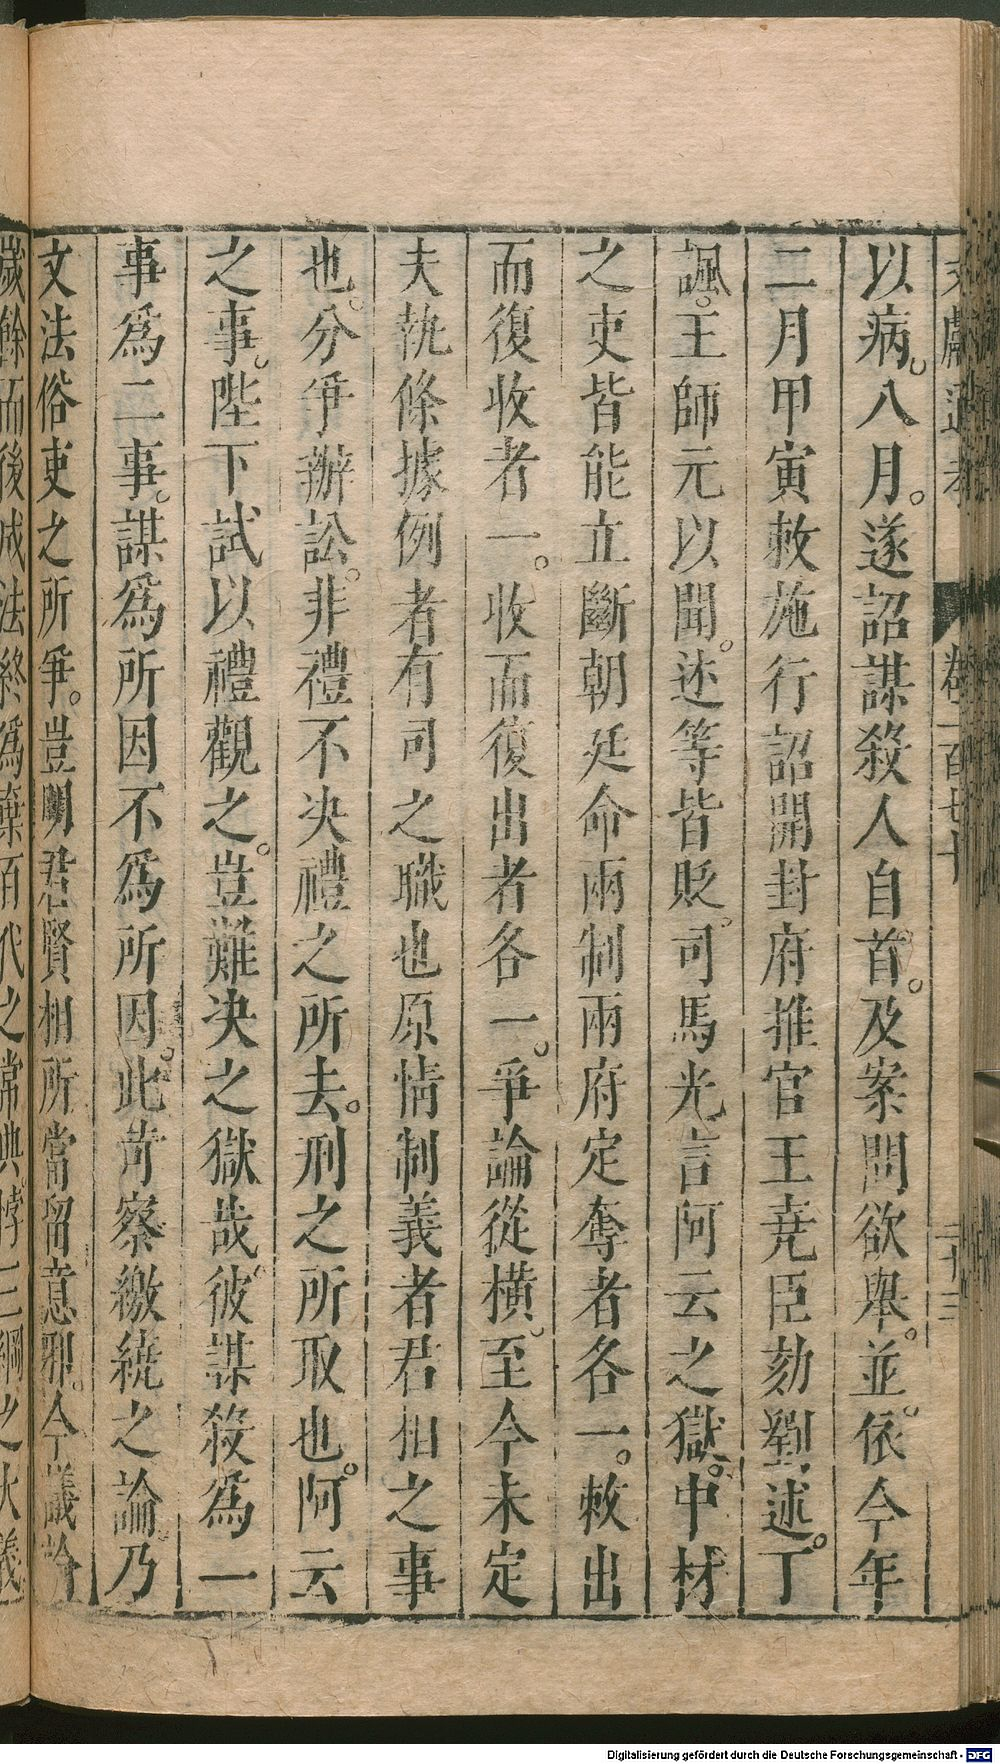 文獻通考 卷一百七十 二十三
以病八月遂詔謀殺人自首及案問欲舉並依今年
二月甲寅敕施行詔開封府推官王堯臣劾劉述丁
諷王師元以聞述等皆貶司馬光言阿云之獄中材
之吏皆能立斷朝廷命兩制兩府定奪者各一敕出
而復收者一收而復出者各一爭論從橫至今未定
夫執條據例者有司之職也原情制義者君相之事
也分爭辦訟非禮不决禮之所去刑之所取也阿云
之事陛下試以禮觀之豈難决之獄哉彼謀殺爲一
事爲二事謀爲所因不爲所因此苛察繳繞之論乃
文法俗吏之所爭豈明君賢相所當留意邪今議論
歲餘而後成法終爲棄百代之常典悖三綱之大義
Digitalisierung gefördert durch die Deutsche Forschungsgemeinschaft - DFG